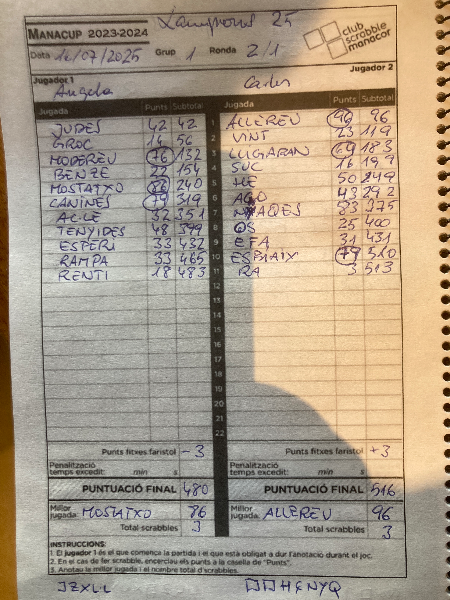 25
MANACUP 2023-2024
club scrabble manacor
Data 16/07/2025 Grup 1 Ronda 2/1
Jugador 1 Jugador 2
Angela Carles
Jugada Punts Subtotal Jugada Punts Subtotal
JUDES 42 42 1 ALLEREU 96 96
GROC 14 56 2 VINT 23 119
MODEREU 76 132 3 LLIGARAN 183
BENZE 22 154 4 SUC 16 199
MOSTATXO 86 240 5 HE 50 249
CANINES 79 319 6 43 292
ACLE 32 351 7 83 375
TENYIDES 48 399 8 OS 25 400
ESPERI 33 432 9 EFA 31 431
RAMPA 33 465 10 79 510
RENTI 18 483 11 RA 3 513
12
13
14
15
16
17
18
19
20
21
22
Punts fitxes faristol -3 Punts fitxes faristol +3
Penalització temps excedit: min s Penalització temps excedit: min s
PUNTUACIÓ FINAL 480 PUNTUACIÓ FINAL 516
Millor jugada: MOSTATXO 86 Millor jugada: ALLEREU 96
Total scrabbles 3 Total scrabbles 3
INSTRUCCIONS:
1. El jugador 1 és el que comença la partida i el que està obligat a dur l'anotació durant el joc.
2. En el cas de fer scrabble, encercleu els punts a la casella de "Punts".
3. Anotau la millor jugada i el nombre total d'scrabbles.